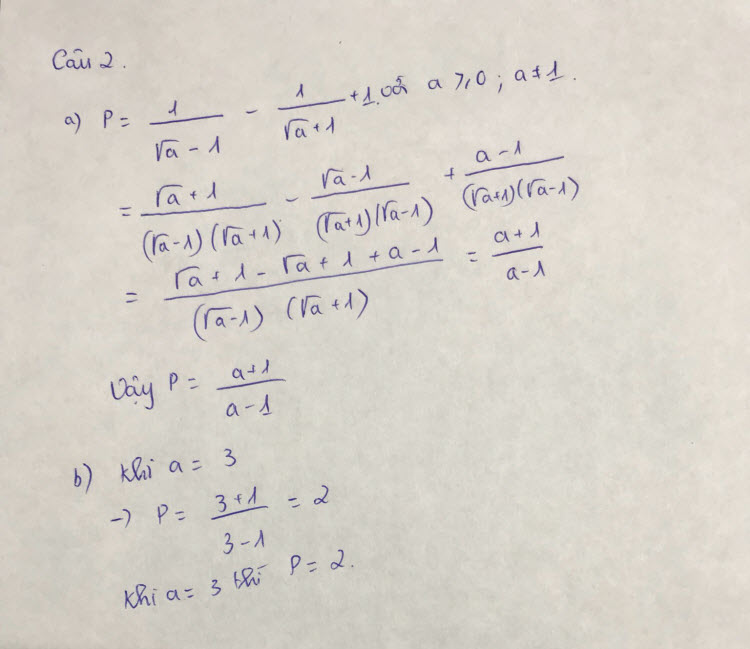 Câu 2.
a) P = 1/(√a - 1) - 1/(√a + 1) + 1 với a ≥ 0 ; a ≠ 1.
= (√a + 1)/((√a - 1)(√a + 1)) - (√a - 1)/((√a + 1)(√a - 1)) + (a - 1)/((√a + 1)(√a - 1))
= (√a + 1 - √a + 1 + a - 1)/((√a - 1)(√a + 1)) = (a + 1)/(a - 1)
Vậy P = (a + 1)/(a - 1)
b) Khi a = 3
→ P = (3 + 1)/(3 - 1) = 2
Khi a = 3 thì P = 2.